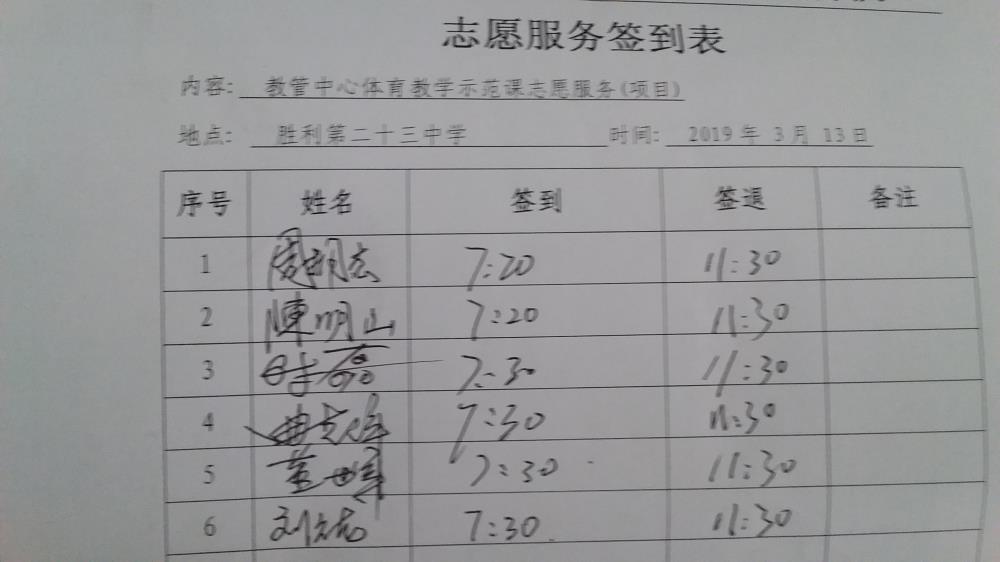 志愿服务签到表
内容: 教管中心体育教学示范课志愿服务(项目)
地点: 胜利第二十三中学 时间: 2019 年 3 月 13 日
序号 姓名 签到 签退 备注
1 周明志 7:20 11:30
2 陳明山 7:20 11:30
3 7:30 11:30
4 7:30 11:30
5 7:30 11:30
6 7:30 11:30